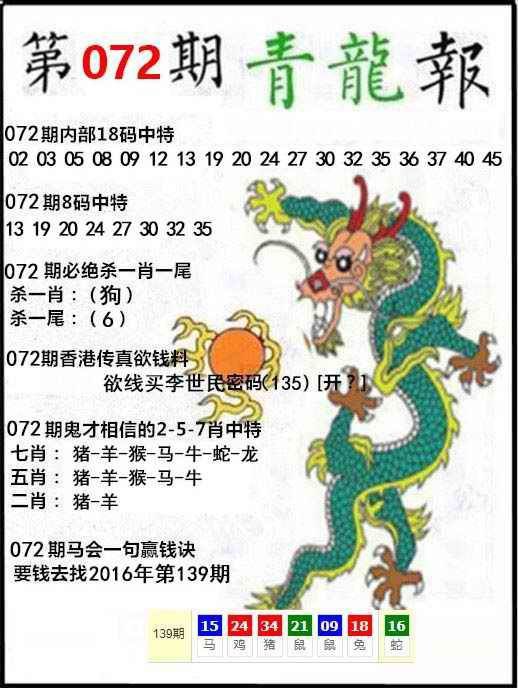 第072期青龍報
072期内部18码中特
02 03 05 08 09 12 13 19 20 24 27 30 32 35 36 37 40 45
072期8码中特
13 19 20 24 27 30 32 35
072 期必绝杀一肖一尾
杀一肖：（狗）
杀一尾：（6）
072期香港传真欲钱料
欲线买李世民密码(135) [开？]
072期鬼才相信的2-5-7肖中特
七肖：猪-羊-猴-马-牛-蛇-龙
五肖：猪-羊-猴-马-牛
二肖：猪-羊
072期马会一句赢钱诀
要钱去找2016年第139期
139期 15 24 34 21 09 18 16
马 鸡 猪 鼠 鼠 兔 蛇